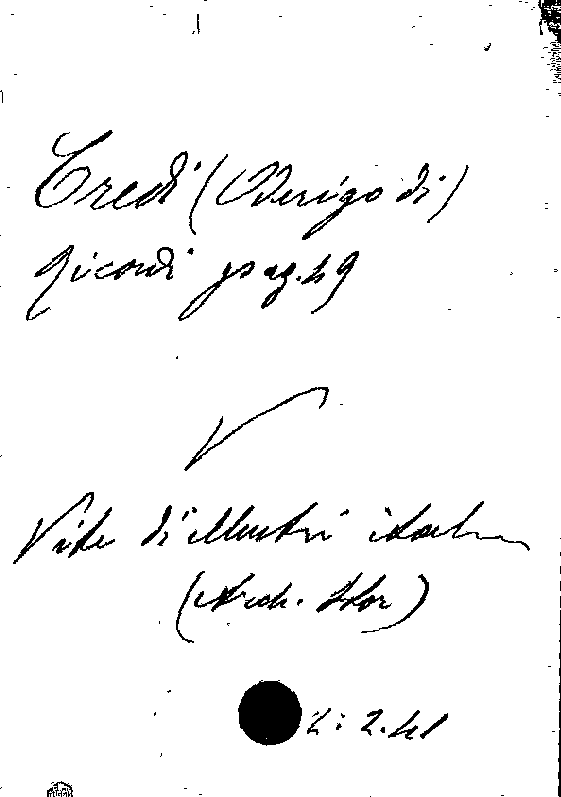 Credi (Oderigo di)
Ricordi pag. 49
V
Vite di illustri ital
(Arch. Stor)
2. 41